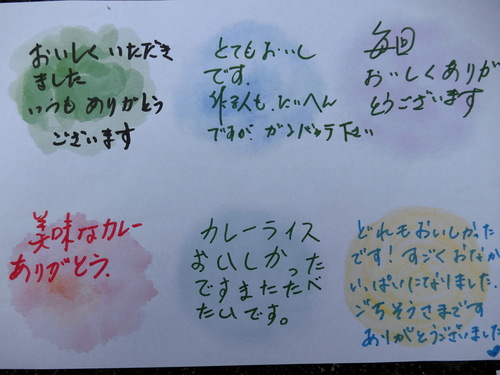 おいしくいただき
ました
いつもありがとう
ございます
とてもおいし
です.
作る人も.たいへん
ですが.ガンバッテ下さい
毎回
おいしくありが
とうございます
美味なカレー
ありがとう.
カレーライス
おいしかった
ですまたたべ
たいです。
どれもおいしかった
です!すごくおなかが
いっぱいになりました.
ごちそうさまです
ありがとうございました